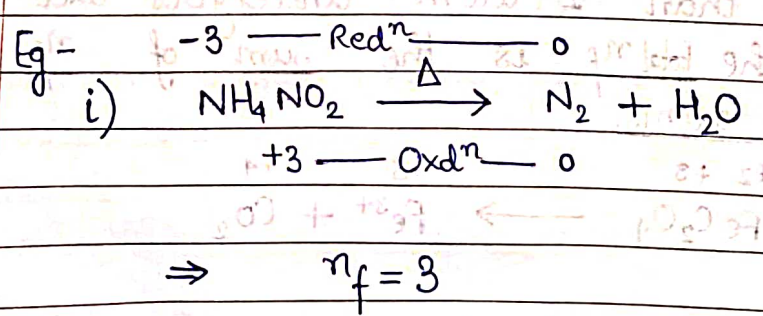 Eg - -3 — Redⁿ — 0
i) NH₄NO₂ —Δ→ N₂ + H₂O
+3 — Oxdⁿ — 0
⇒ n_f = 3